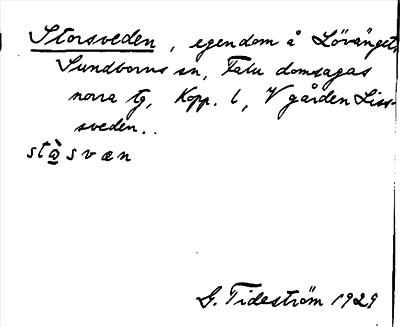 Storsveden, egendom å Lövänget,
Sundborns sn, Falu domsagas
norra tg, Kopp. l, V gården Liss-
sveden..
stàsvæn
G. Tideström 1929